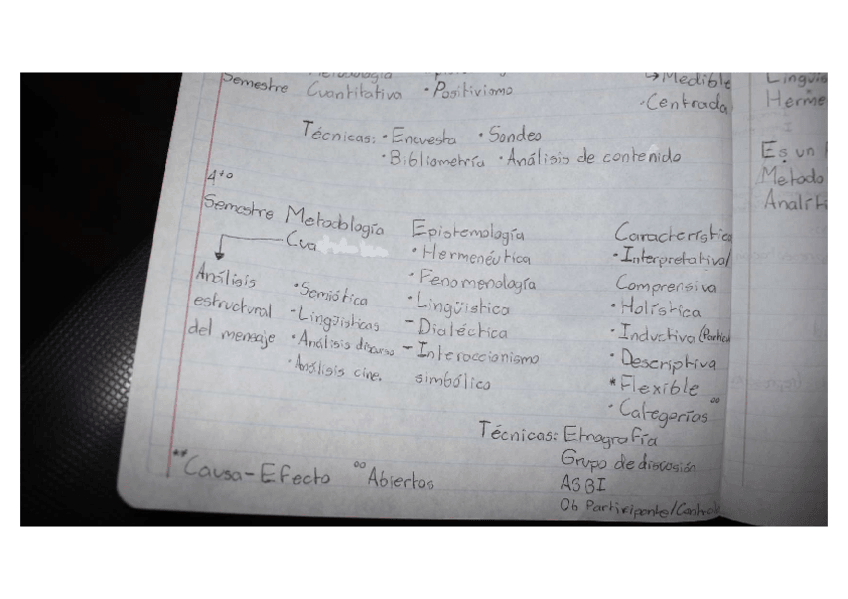 Semestre Cuantitativa · Positivismo
→Medible
· Centrada
Técnicas: · Encuesta · Sondeo
· Bibliometría · Análisis de contenido
4to
Semestre Metodología
Cua
Análisis
estructural
del mensaje
· Semiótica
· Lingüísticas
· Análisis discurso
· Análisis cine.
Epistemología
· Hermenéutica
· Fenomenología
· Lingüística
- Dialéctica
- Interaccionismo
simbólico
Característica
· Interpretativa/
Comprensiva
· Holística
· Inductiva
· Descriptiva
* Flexible
· Categorías °°
Técnicas: Etnografía
Grupo de discusión
Ob Participante/
** Causa-Efecto °° Abiertas
Es un
Metodo